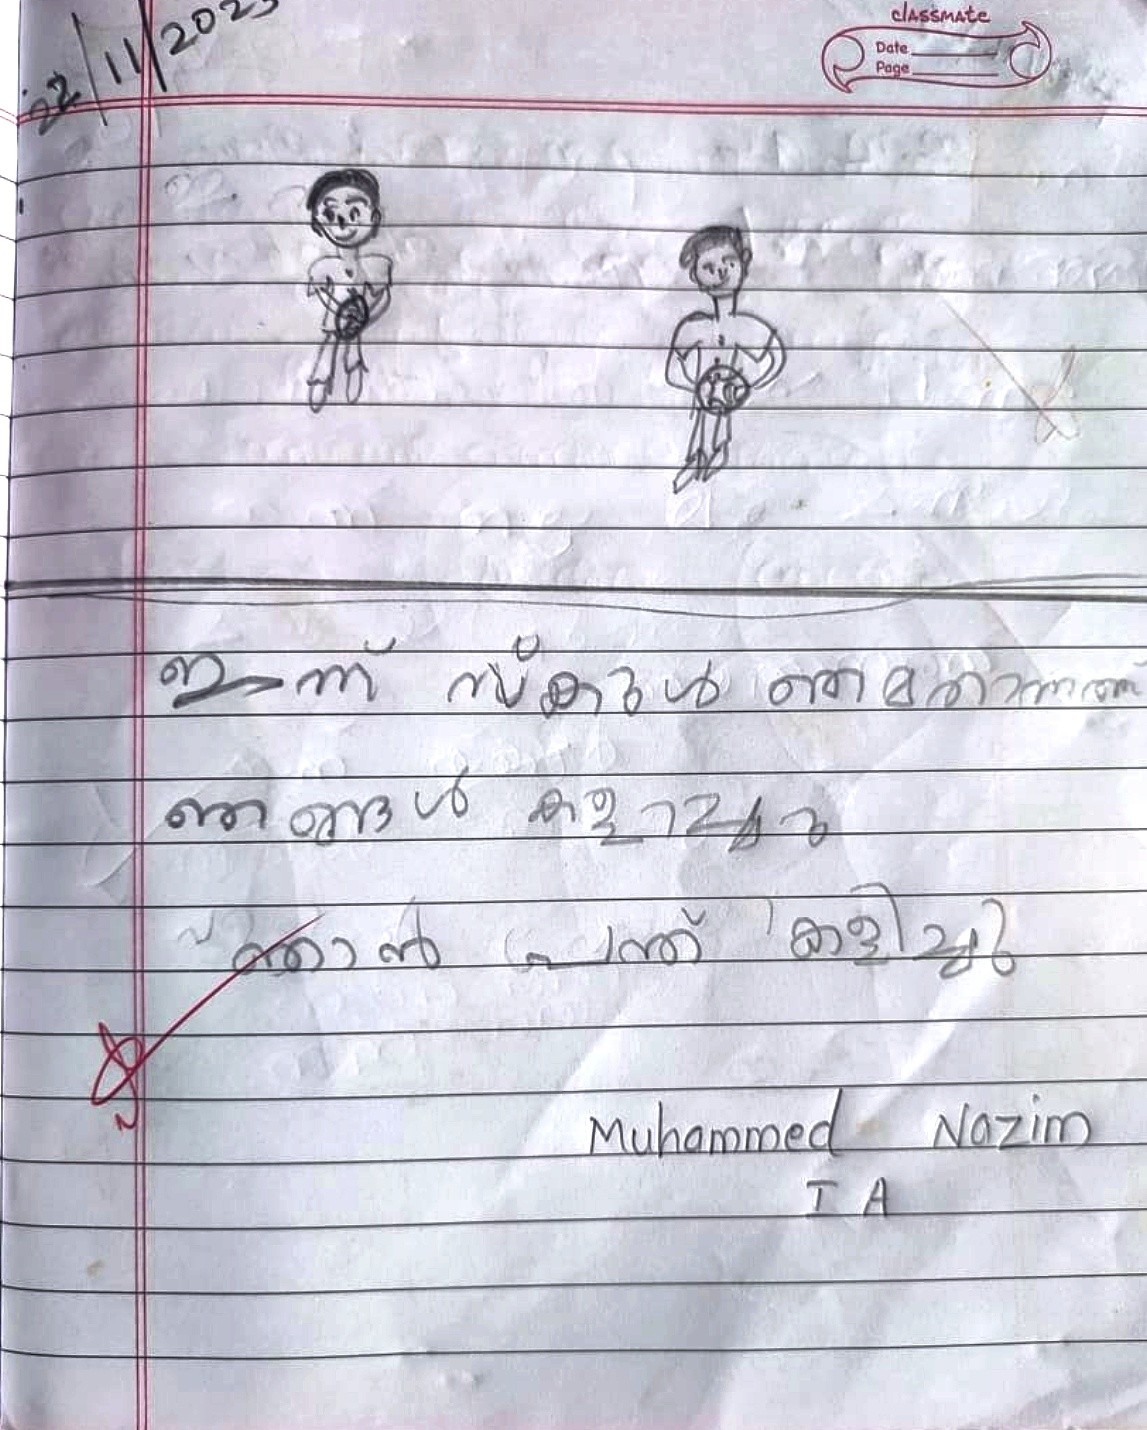 22/11/2023
classmate
Date
Page
ഇന്ന് സ്കൂൾ
ഞങ്ങൾ കളിച്ചു
ഞാൻ പന്ത് കളിച്ചു
Muhammed Nazim
I A